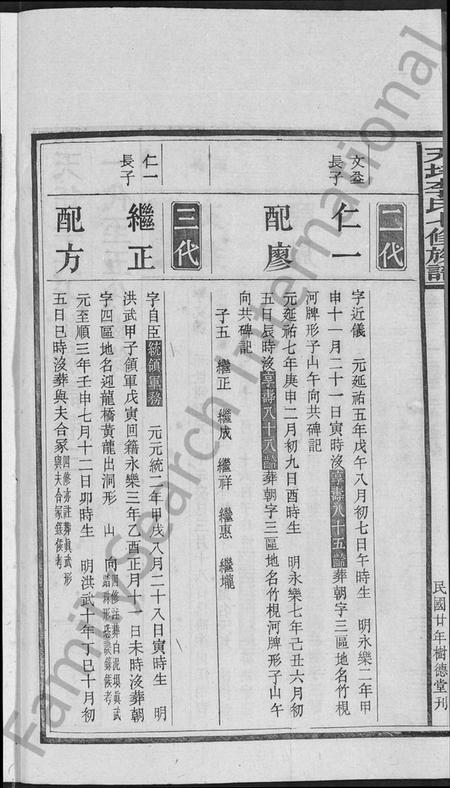 二代
文益長子
仁一
字近儀 元延祐五年戊午八月初七日午時生 明永樂二年甲
申十一月二十一日寅時沒享壽八十五齡葬朝字三區地名竹梘
河牌形子山午向共碑記
配廖
元延祐七年庚申二月初九日酉時生 明永樂七年己丑六月初
五日辰時沒享壽八十八齡葬朝字三區地名竹梘河牌形子山午
向共碑記
子五 繼正 繼成 繼祥 繼惠 繼壠
三代
仁一長子
繼正
字自臣統領軍務 元元統二年甲戌八月二十八日寅時生 明
洪武甲子領軍戊寅回籍永樂三年乙酉正月十一日未時沒葬朝
字四區地名迎龍橋黃龍出洞形 山 向
配方
元至順三年壬申七月十二日卯時生 明洪武十年丁巳十月初
五日巳時沒葬與夫合冢
民國廿年樹德堂刊
FamilySearch International